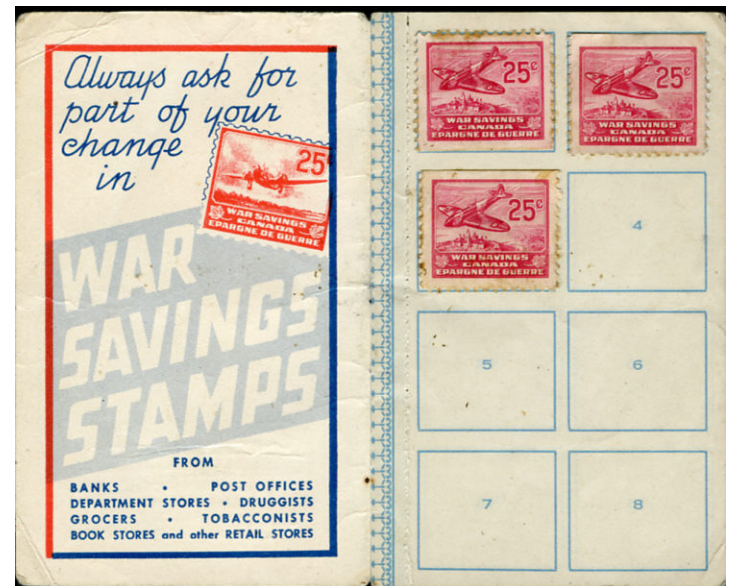 Always ask for
part of your
change
in
25
WAR SAVINGS
CANADA
EPARGNE DE GUERRE
WAR
SAVINGS
STAMPS
FROM
BANKS • POST OFFICES
DEPARTMENT STORES • DRUGGISTS
GROCERS • TOBACCONISTS
BOOK STORES and other RETAIL STORES
25¢
WAR SAVINGS
CANADA
EPARGNE DE GUERRE
25¢
WAR SAVINGS
CANADA
EPARGNE DE GUERRE
25¢
WAR SAVINGS
CANADA
EPARGNE DE GUERRE
4
5
6
7
8